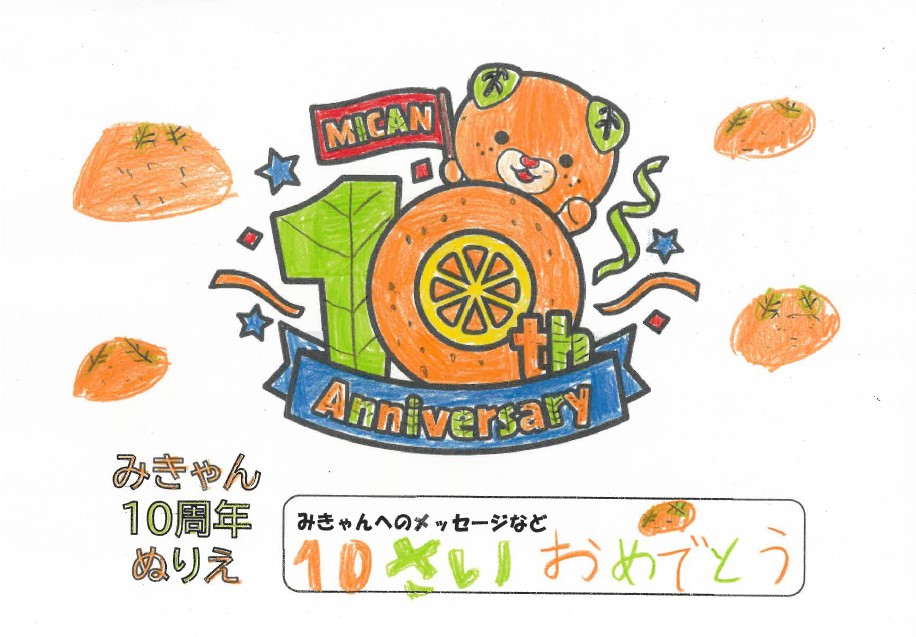 MICAN
10th
Anniversary
みきゃん
10周年
ぬりえ
みきゃんへのメッセージなど
10さい おめでとう